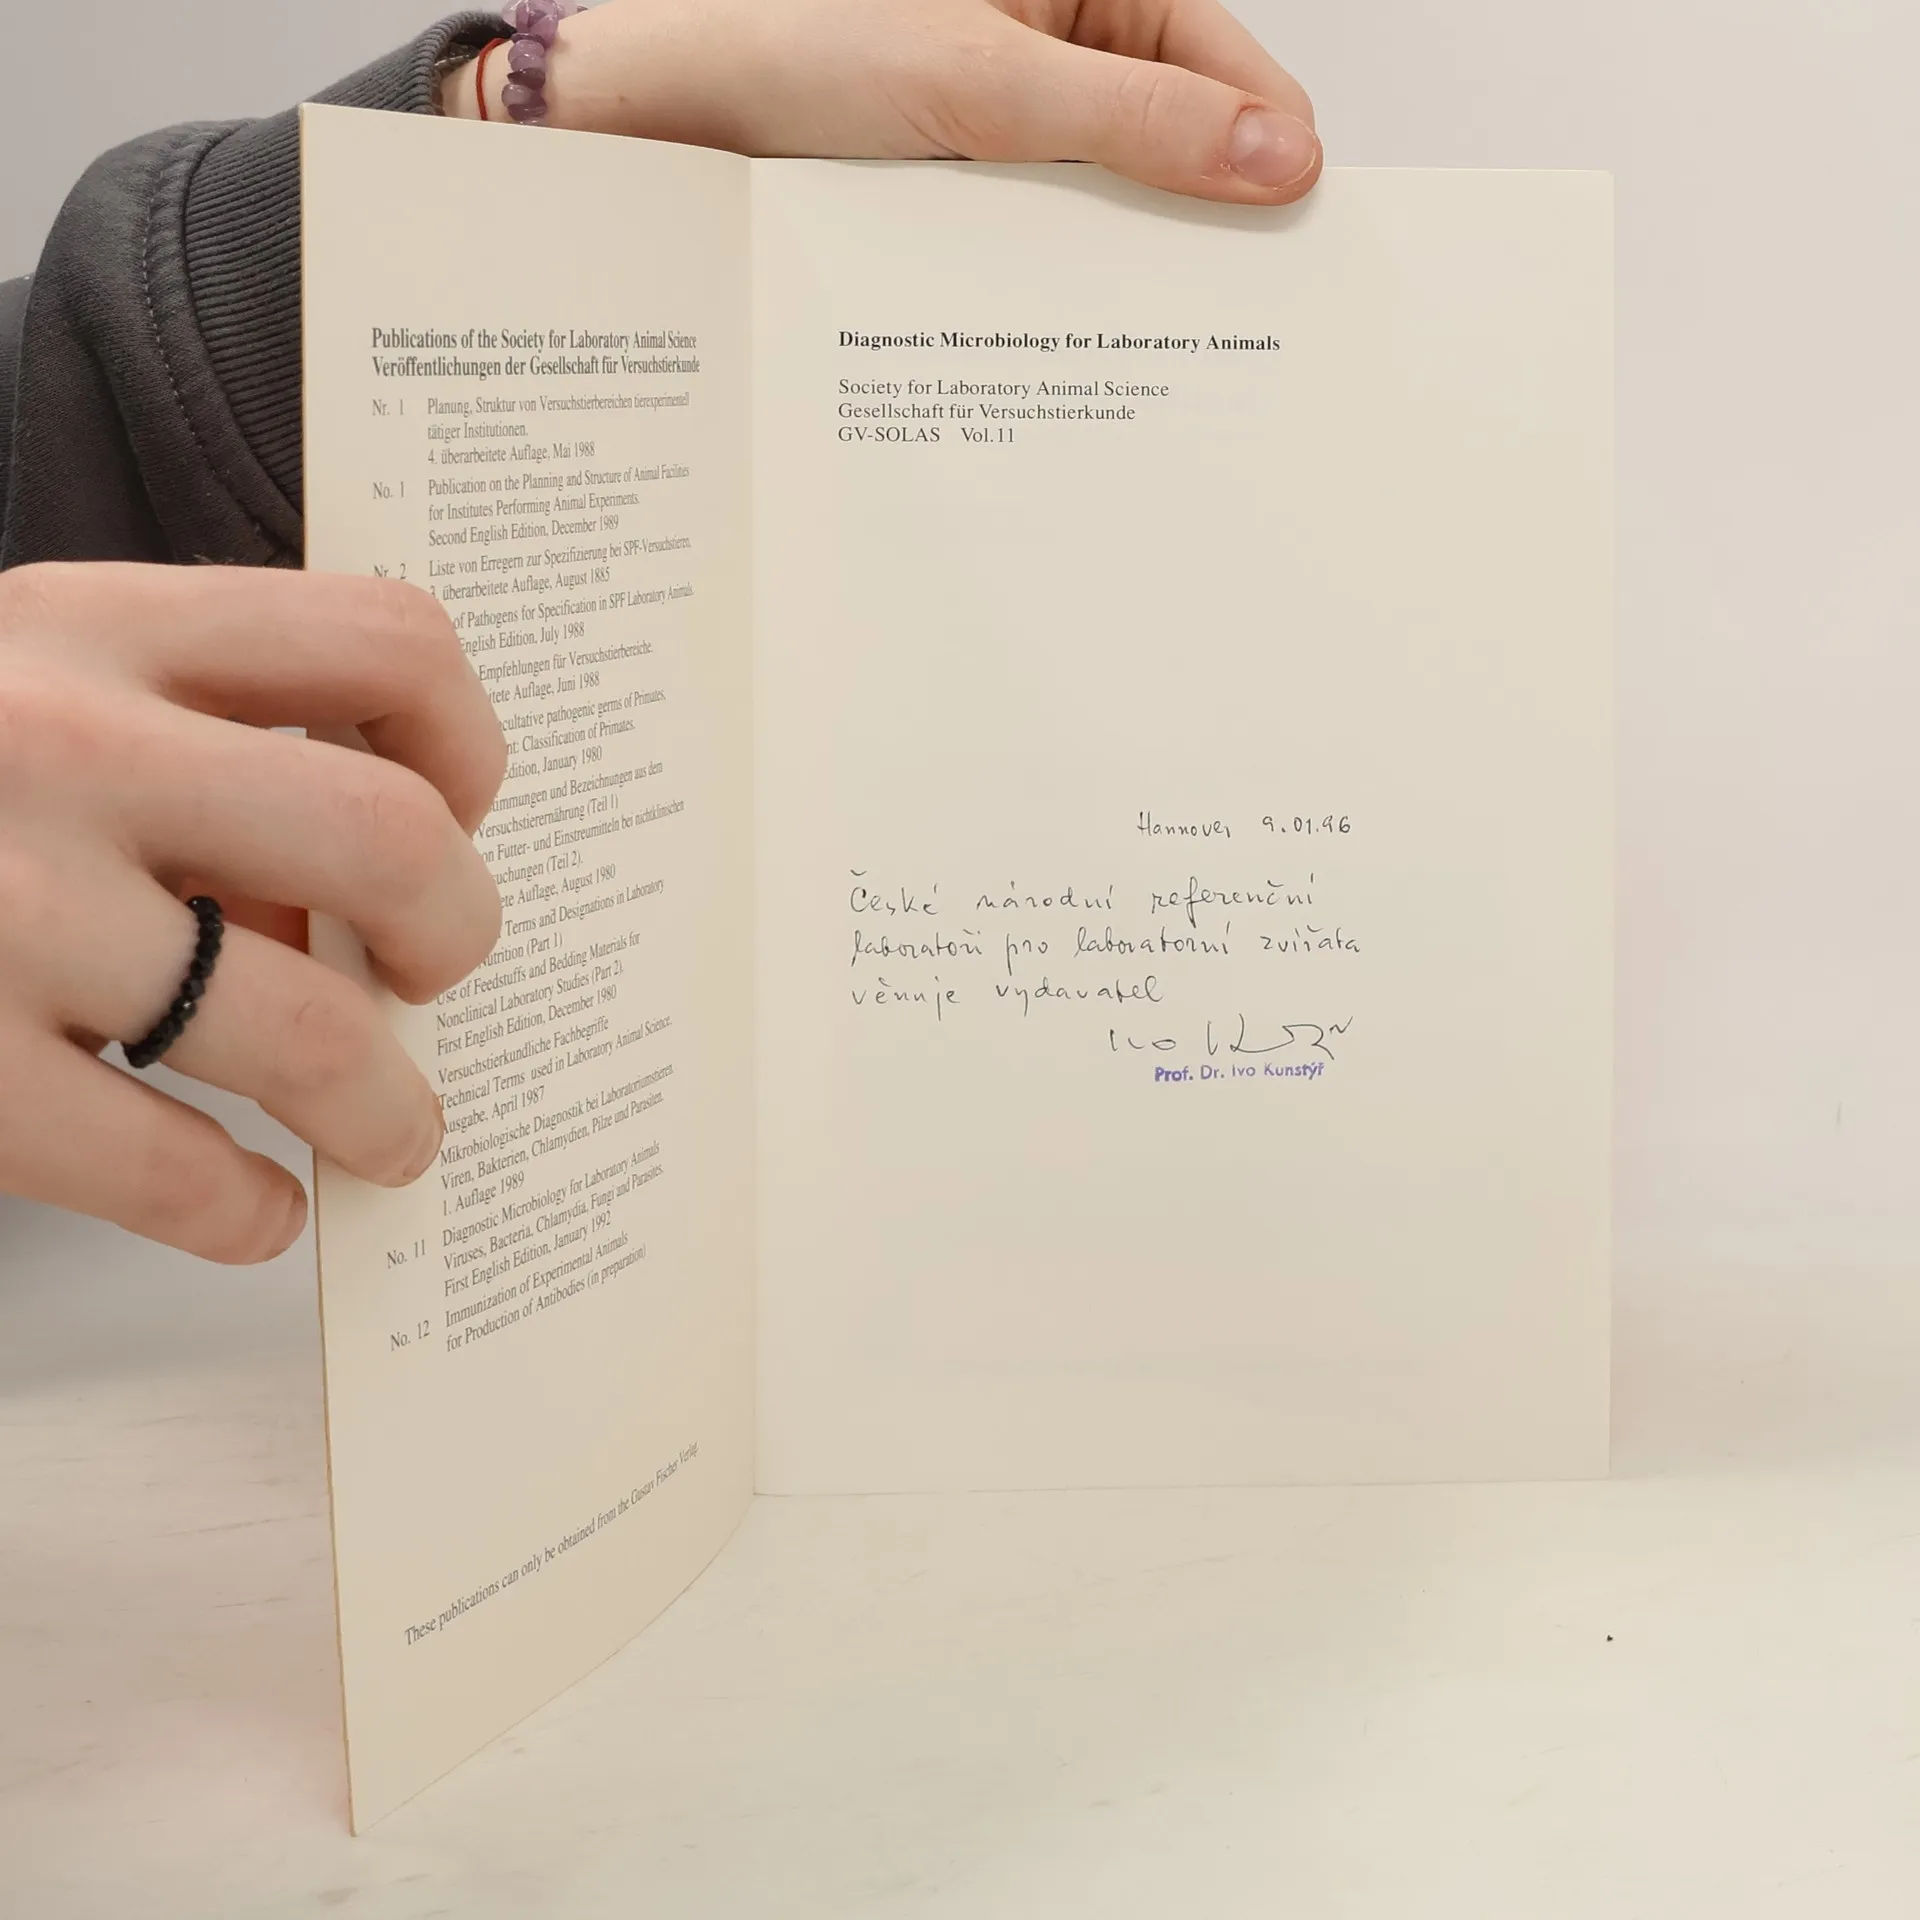 Publications of the Society for Laboratory Animal Science
Veröffentlichungen der Gesellschaft für Versuchstierkunde
Nr. 1 Planung, Struktur von Versuchstierbereichen tierexperimentell
tätiger Institutionen.
4. überarbeitete Auflage, Mai 1988
No. 1 Publication on the Planning and Structure of Animal Facilities
for Institutes Performing Animal Experiments.
Second English Edition, December 1989
Nr. 2 Liste von Erregern zur Spezifizierung bei SPF-Versuchstieren.
3. überarbeitete Auflage, August 1885
of Pathogens for Specification in SPF Laboratory Animals.
English Edition, July 1988
Empfehlungen für Versuchstierbereiche.
Auflage, Juni 1988
pathogenic germs of Primates,
Classification of Primates.
Edition, January 1980
und Bezeichnungen aus dem
Versuchstierernährung (Teil 1)
Futter- und Einstreumitteln bei nichtklinischen
(Teil 2).
Auflage, August 1980
Terms and Designations in Laboratory
Nutrition (Part 1)
Use of Feedstuffs and Bedding Materials for
Nonclinical Laboratory Studies (Part 2).
First English Edition, December 1980
Versuchstierkundliche Fachbegriffe
Technical Terms used in Laboratory Animal Science.
Ausgabe, April 1987
Mikrobiologische Diagnostik bei Laboratoriumstieren
Viren, Bakterien, Chlamydien, Pilze und Parasiten.
1. Auflage 1989
No. 11 Diagnostic Microbiology for Laboratory Animals
Viruses, Bacteria, Chlamydia, Fungi and Parasites.
First English Edition, January 1992
No. 12 Immunization of Experimental Animals
for Production of Antibodies (in preparation)
These publications can only be obtained from the Gustav Fischer Verlag.
Diagnostic Microbiology for Laboratory Animals
Society for Laboratory Animal Science
Gesellschaft für Versuchstierkunde
GV-SOLAS Vol. 11
Hannover 9.01.96
České národní referenční
laboratoři pro laboratorní zvířata
věnuje vydavatel
Ivo
Prof. Dr. Ivo Kunstýř